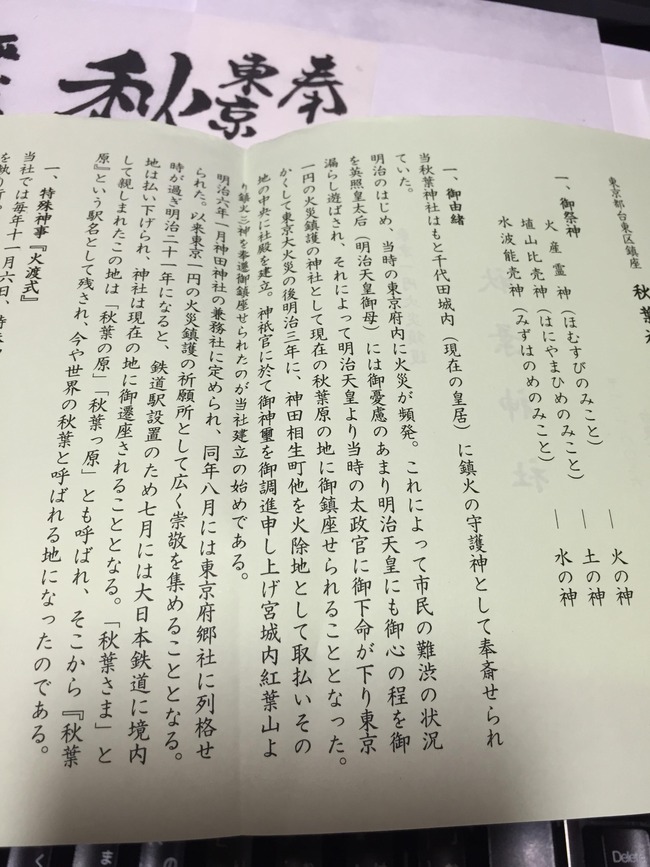 奉
東京
秋
東京都台東区鎮座
秋葉神
一、御祭神
火産霊神(ほむすびのみこと) ― 火の神
埴山比売神(はにやまひめのみこと) ― 土の神
水波能売神(みずはのめのみこと) ― 水の神
一、御由緒
当秋葉神社はもと千代田城内(現在の皇居)に鎮火の守護神として奉斎せられ
ていた。
明治のはじめ、当時の東京府内に火災が頻発。これによって市民の難渋の状況
を英照皇太后(明治天皇御母)には御憂慮のあまり明治天皇にも御心の程を御
漏らし遊ばされ、それによって明治天皇より当時の太政官に御下命が下り東京
一円の火災鎮護の神社として現在の秋葉原の地に御鎮座せられることとなった。
かくして東京大火災の後明治三年に、神田相生町他を火除地として取払いその
地の中央に社殿を建立。神祇官に於て御神璽を御調進申し上げ宮城内紅葉山よ
り鎮火三神を奉遷御鎮座せられたのが当社建立の始めである。
明治六年一月神田神社の兼務社に定められ、同年八月には東京府郷社に列格せ
られた。以来東京一円の火災鎮護の祈願所として広く崇敬を集めることとなる。
時が過ぎ明治二十一年になると、鉄道駅設置のため七月には大日本鉄道に境内
地は払い下げられ、神社は現在の地に御遷座されることとなる。「秋葉さま」と
して親しまれたこの地は「秋葉の原」「秋葉っ原」とも呼ばれ、そこから『秋葉
原』という駅名として残され、今や世界の秋葉と呼ばれる地になったのである。
一、特殊神事『火渡式』
当社では毎年十一月六日、
Delete